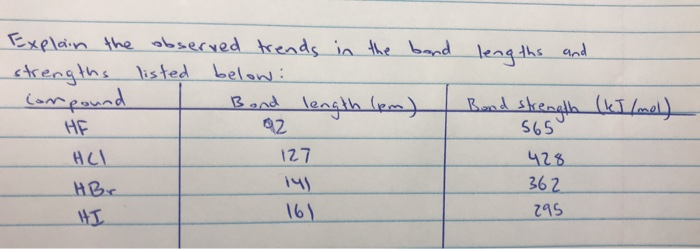 Explain the observed trends in the bond lengths and
strengths listed below:
Compound Bond length (pm) Bond strength (kJ/mol)
HF 92 565
HCl 127 428
HBr 141 362
HI 161 295